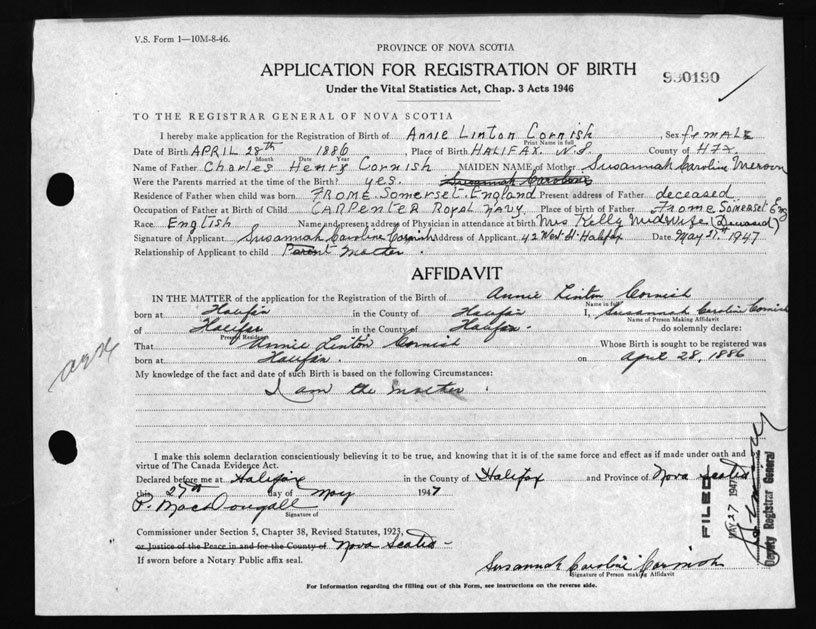 V.S. Form 1—10M-8-46.
PROVINCE OF NOVA SCOTIA
APPLICATION FOR REGISTRATION OF BIRTH
930190
Under the Vital Statistics Act, Chap. 3 Acts 1946
TO THE REGISTRAR GENERAL OF NOVA SCOTIA
I hereby make application for the Registration of Birth of Annie Linton Cornish, Sex female
Print Name in full
Date of Birth APRIL 28th 1886, Place of Birth HALIFAX. N.S. County of HFX.
Month Date Year
Name of Father Charles Henry Cornish MAIDEN NAME of Mother Susannah Caroline
Were the Parents married at the time of the Birth? yes. Susannah Caroline
Residence of Father when child was born FROME Somerset. England Present address of Father deceased
Occupation of Father at Birth of Child CARPENTER Royal Navy Place of birth of Father Frome Somerset Eng
Race English Name and present address of Physician in attendance at birth Mrs Kelly Midwife (Deceased)
Signature of Applicant Susannah Caroline Cornish Address of Applicant 42 West St. Halifax Date May 27th 1947
Relationship of Applicant to child Parent Mother.
AFFIDAVIT
IN THE MATTER of the application for the Registration of the Birth of Annie Linton Cornish
Name in full
born at Halifax in the County of Halifax I, Susannah Caroline Cornish
Name of Person Making Affidavit
of Halifax in the County of Halifax. do solemnly declare:
Present Residence
That Annie Linton Cornish Whose Birth is sought to be registered was
born at Halifax. on April 28, 1886
My knowledge of the fact and date of such Birth is based on the following Circumstances:
I am the mother.
I make this solemn declaration conscientiously believing it to be true, and knowing that it is of the same force and effect as if made under oath and
virtue of The Canada Evidence Act.
Declared before me at Halifax in the County of Halifax and Province of Nova Scotia
this 27th day of May 1947
P. MacDougall
Signature of
Commissioner under Section 5, Chapter 38, Revised Statutes, 1923,
or Justice of the Peace in and for the County of Nova Scotia
If sworn before a Notary Public affix seal.
Susannah Caroline Cornish
Signature of Person making Affidavit
For Information regarding the filling out of this Form, see instructions on the reverse side.
FILED
MAY 27 1947
Deputy Registrar General